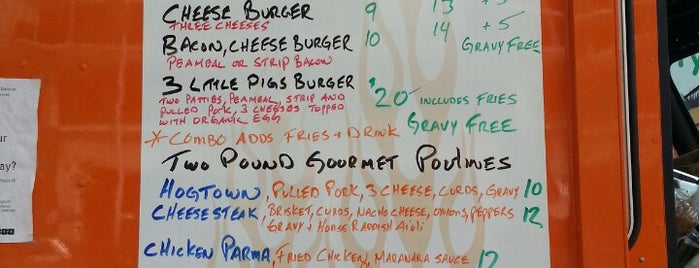 CHEESE BURGER 9 13 +5
THREE CHEESES
BACON, CHEESE BURGER 10 14 +5
PEAMEAL OR STRIP BACON GRAVY FREE
3 LITTLE PIGS BURGER
TWO PATTIES, PEAMEAL, STRIP AND $20 INCLUDES FRIES
PULLED PORK, 3 CHEESES TOPPED
WITH ORGANIC EGG GRAVY FREE
* COMBO ADDS FRIES + DRINK
TWO POUND GOURMET POUTINES
HOGTOWN, PULLED PORK, 3 CHEESE, CURDS, GRAVY 10
CHEESESTEAK, BRISKET, CURDS, NACHO CHEESE, ONIONS, PEPPERS 12
GRAVY + HORSE RADDISH AIOLI
CHICKEN PARMA, FRIED CHICKEN, MARANARA SAUCE 12